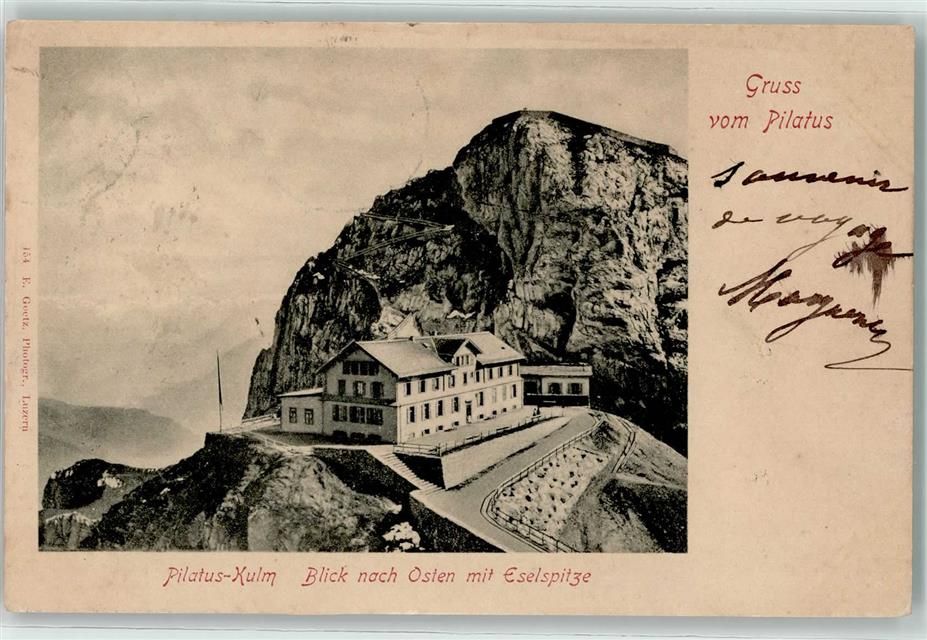 Gruss
vom Pilatus
Souvenir
de voyage
154 E. Goetz, Photogr., Luzern
Pilatus-Kulm Blick nach Osten mit Eselspitze